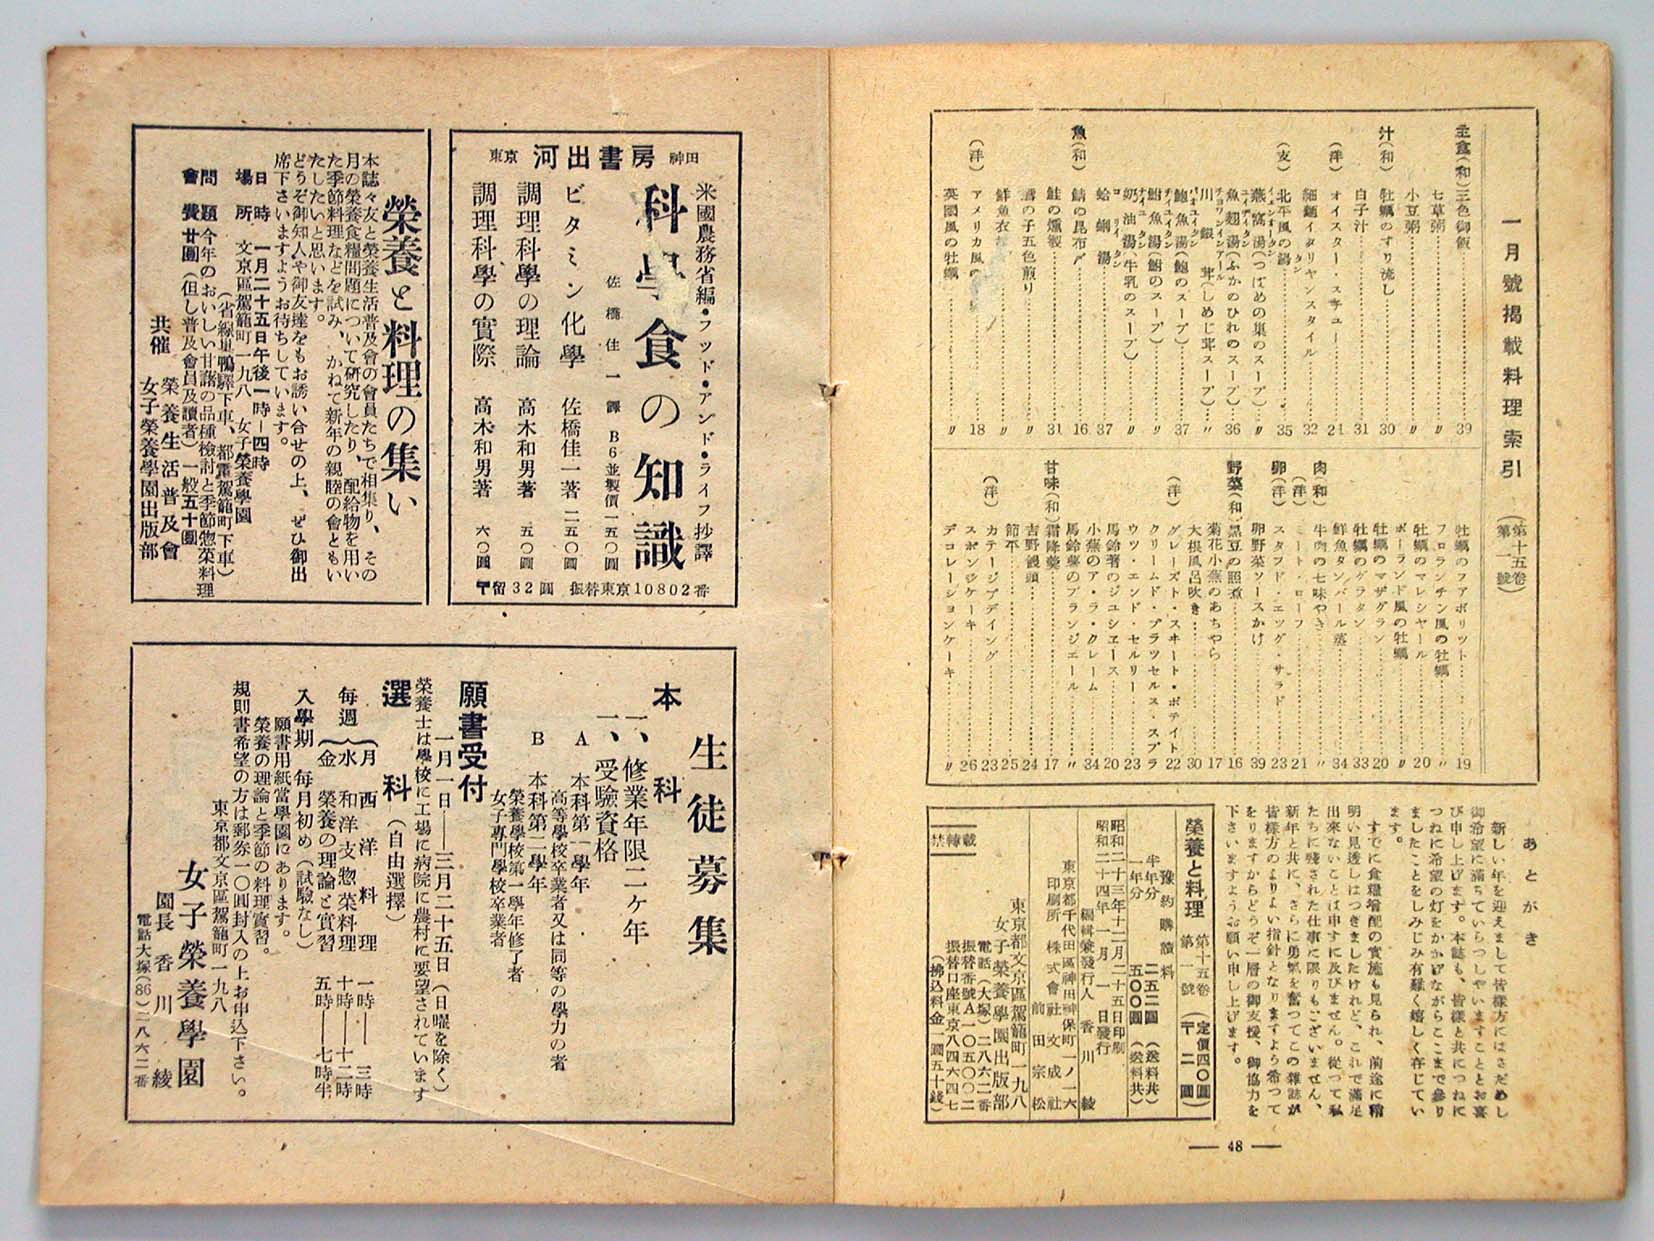 一月號掲載料理索引
（第十五卷第一號）
主食（和）三色御飯 39
七草粥 〃
小豆粥 〃
汁（和）牡蠣のすり流し 30
白子汁 31
（洋）オイスター・スチュー 21
細麺イタリヤンスタイル 32
（支）北平風の湯 35
燕窩湯（つばめの巣のスープ）〃
魚翅湯（ふかのひれのスープ）36
川銀茸（しめじ茸スープ）〃
鮑魚湯（鮑のスープ）37
鮒魚湯（鮒のスープ）〃
奶油湯（牛乳のスープ）〃
蛤蜊湯 37
魚（和）鯖の昆布〆 16
鮭の燻製 31
鱈の子五色煎り 〃
鮮魚衣 〃
（洋）アメリカ風の牡蠣 18
英國風の牡蠣 〃
牡蠣のフアボリツト 19
フロランチン風の牡蠣 〃
牡蠣のマレシヤール 20
ポーランド風の牡蠣 〃
牡蠣のマザグラン 20
牡蠣のグラタン 33
鮮魚タンバール蒸 34
肉（和）牛肉の七味やき 〃
（洋）ミート・ローフ 21
卵（洋）スタフド・エッグ・サラド 23
卵野菜ソースかけ 39
野菜（和）黒豆の照煮 16
菊花小蕪のあちやら 17
大根風呂吹き 30
（洋）グレーズト・スヰート・ポテイト 22
クリームド・ブラツセルス・スプラ 〃
ウツ・エンド・セルリー 23
馬鈴薯のジユシエース 20
小蕪のア・ラ・クレーム 34
馬鈴薯のブランジエール 〃
甘味（和）霜降羹 17
吉野饅頭 24
節平 25
（洋）カテージプデイング 23
スポンジケーキ 26
デコレーションケーキ 〃
あとがき
新しい年を迎えまして皆様方にはさだめし
御希望に満ちていらつしやいますこととお喜
び申し上げます。本誌も、皆樣と共につねに
つねに希望の灯をかかげながらここまで參り
ましたことをしみじみ有難く嬉しく存じてい
ます。
すでに食糧増配の實施も見られ、前途に稍
明い見透しはつきましたけれど、これで滿足
出來ないことは申すに及びません。從つて私
たちに殘された仕事に限りもございません。
新年と共に、さらに勇氣を奮つてこの雜誌が
皆樣方のよりよい指針となりますよう希つて
をりますからどうぞ一層の御支援、御協力を
下さいますようお願い申し上げます。
榮養と料理 第十五卷 第一號（定價四〇圓 〒二圓）
豫約購讀料
半年分 二五二圓（送料共）
一年分 五〇〇圓（送料共）
昭和二十三年十二月二十五日印刷
昭和二十四年一月一日發行
編輯兼發行人 香川綾
東京都千代田區神田神保町一ノ一六
印刷所 株式會社文成社
前田宗松
東京都文京區駕籠町一九八
女子榮養學園出版部
電話（大塚）二八六二番
振替番號A一〇五〇〇二
振替口座東京八四六四七
（拂込料金一圓五十錢）
禁轉載
— 48 —
東京 河出書房 神田
米國農務省編・フッド・アンド・ライフ抄譯
科學食の知識
佐橋佳一譯 B6並製價一五〇圓
ビタミン化學 佐橋佳一著 二五〇圓
調理科學の理論 高木和男著 五〇圓
調理科學の實際 高木和男著 六〇圓
〒留32圓 振替東京10802番
榮養と料理の集い
本誌々友と榮養生活普及會の會員たちで相集り、その
月の榮養食糧問題について研究したり、配給物を用い
た季節料理などを試み、かねて新年の親睦の會ともい
たしたいと思います。
どうぞ御知人や御友達をもお誘い合せの上、ぜひ御出
席下さいますようお待ちしています。
日時 一月二十五日午後一時－四時
場所 文京區駕籠町一九八 女子榮養學園
（省線巣鴨驛下車、都電駕籠町下車）
問題 今年のおいしい甘藷の品種檢討と季節惣菜料理
會費 廿圓（但し普及會員及讀者）一般五十圓
共催 榮養生活普及會
女子榮養學園出版部
生徒募集
本科
一、修業年限二ケ年
一、受驗資格
A 本科第一學年
高等學校卒業者又は同等の學力の者
B 本科第二學年
榮養學校第一學年修了者
女子專門學校卒業者
願書受付
一月一日――三月二十五日（日曜を除く）
榮養士は學校に工場に病院に農村に要望されています
選科（自由選擇）
毎週
月 西洋料理 一時――三時
水 和洋支惣菜料理 十時――十二時
金 榮養の理論と實習 五時――七時半
入學期 毎月初め（試驗なし）
願書用紙當學園にあります。
榮養の理論と季節の料理實習。
規則書希望の方は郵券一〇圓封入の上お申込下さい。
東京都文京區駕籠町一九八
女子榮養學園
園長 香川綾
電話大塚（86）二八六二番